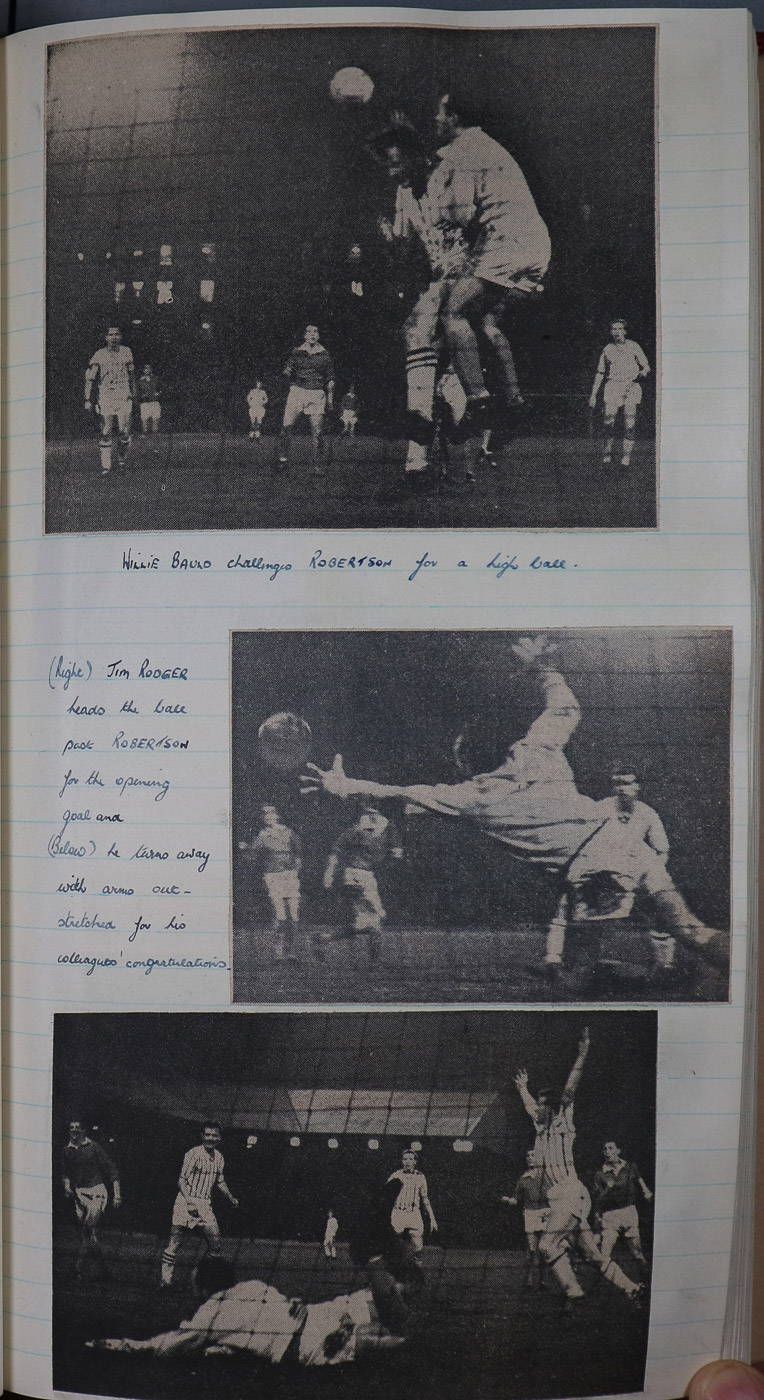 WILLIE BAULD challenges ROBERTSON for a high ball.
(Right) JIM RODGER
heads the ball
past ROBERTSON
for the opening
goal and
(Below) he turns away
with arms out-
stretched for his
colleagues' congratulations.